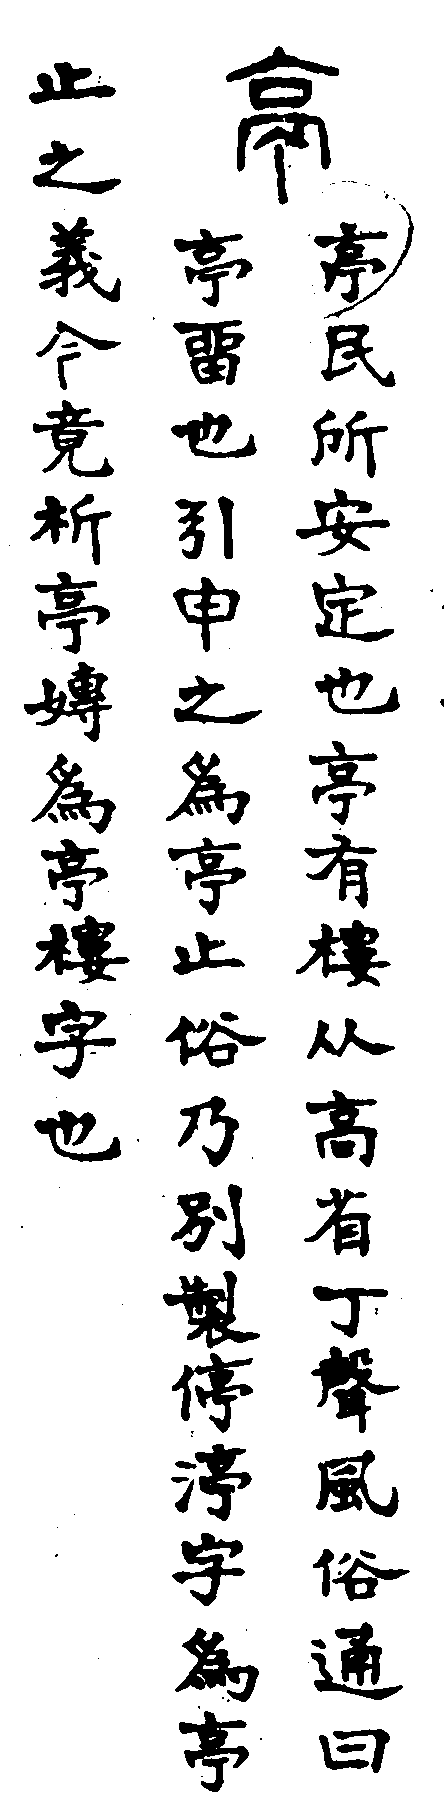 亭
亭民所安定也亭有樓从高省丁聲風俗通曰
亭畱也引申之為亭止俗乃別製停渟字為亭
止之義今竟析亭嫥為亭樓字也